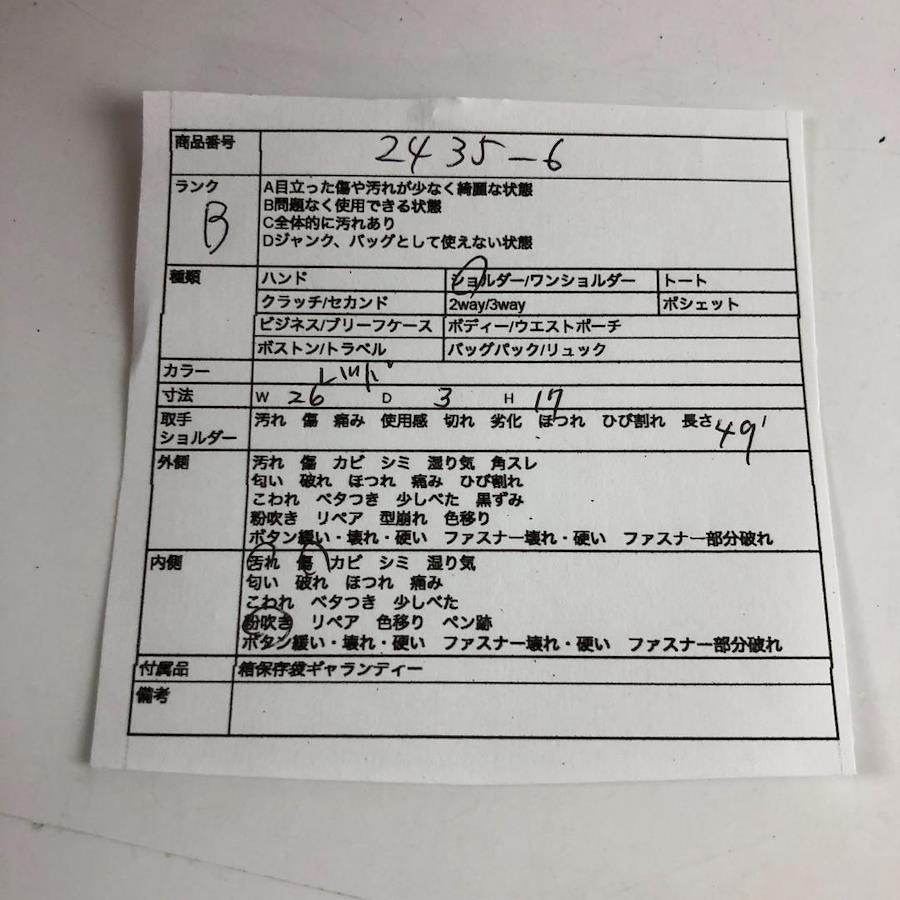 商品番号 2435-6
ランク B
A目立った傷や汚れが少なく綺麗な状態
B問題なく使用できる状態
C全体的に汚れあり
Dジャンク、バッグとして使えない状態
種類 ハンド ショルダー/ワンショルダー トート
クラッチ/セカンド 2way/3way ポシェット
ビジネス/ブリーフケース ボディー/ウエストポーチ
ボストン/トラベル バッグパック/リュック
カラー
寸法 W 26 D 3 H 17
取手 汚れ 傷 痛み 使用感 切れ 劣化 ほつれ ひび割れ 長さ 49
ショルダー
外側 汚れ 傷 カビ シミ 湿り気 角スレ
匂い 破れ ほつれ 痛み ひび割れ
こわれ ベタつき 少しべた 黒ずみ
粉吹き リペア 型崩れ 色移り
ボタン緩い・壊れ・硬い ファスナー壊れ・硬い ファスナー部分破れ
内側 汚れ 傷 カビ シミ 湿り気
匂い 破れ ほつれ 痛み
こわれ ベタつき 少しべた
粉吹き リペア 色移り ペン跡
ボタン緩い・壊れ・硬い ファスナー壊れ・硬い ファスナー部分破れ
付属品 箱保存袋ギャランティー
備考